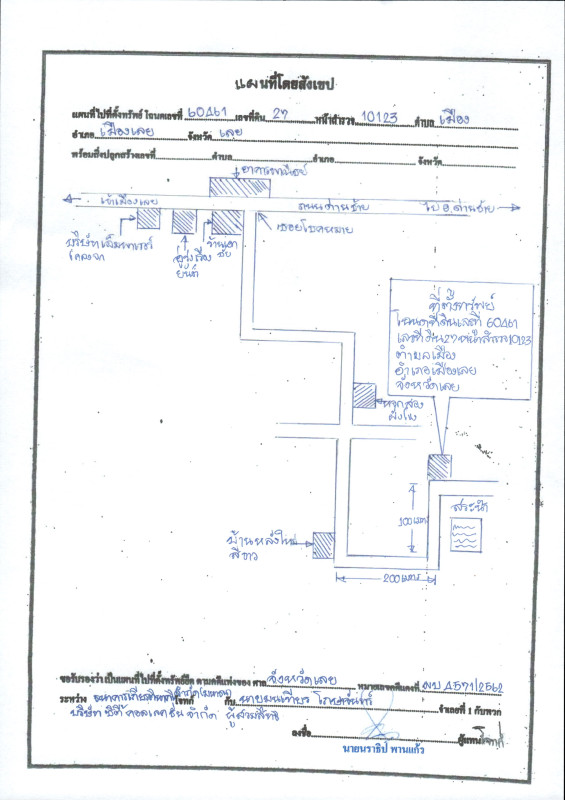 แผนที่โดยสังเขป
แผนที่ไปที่ตั้งทรัพย์ โฉนดเลขที่ 60461 เลขที่ดิน 27 หน้าสำรวจ 10123 ตำบล เมือง
อำเภอ เมืองเลย จังหวัด เลย
พร้อมสิ่งปลูกสร้างเลขที่ ตำบล อำเภอ จังหวัด
อาคารพาณิชย์
เข้าเมืองเลย
ถนนด่านซ้าย
ไป อ.ด่านซ้าย
ซอยโชคหมาย
บริษัท
ที่ตั้งทรัพย์
โฉนดที่ดินเลขที่ 60461
เลขที่ดิน 27 หน้าสำรวจ 10123
ตำบลเมือง
อำเภอเมืองเลย
จังหวัดเลย
สระน้ำ
100 เมตร
บ้านหลังใหญ่
สีขาว
200 เมตร
ขอรับรองว่า เป็นแผนที่ไปที่ตั้งทรัพย์ยึด ตามคดีแพ่งของ ศาล จังหวัดเลย หมายเลขคดีแดงที่ ผบ 4571/2562
ระหว่าง ธนาคารเกียรตินาคิน จำกัด (มหาชน) โจทก์ กับ นายมนเทียร จำเลยที่ 1 กับพวก
บริษัท บีที คอลเลคชั่น จำกัด ผู้สวมสิทธิ
ลงชื่อ ผู้แทนโจทก์
นายนราธิป พานแก้ว